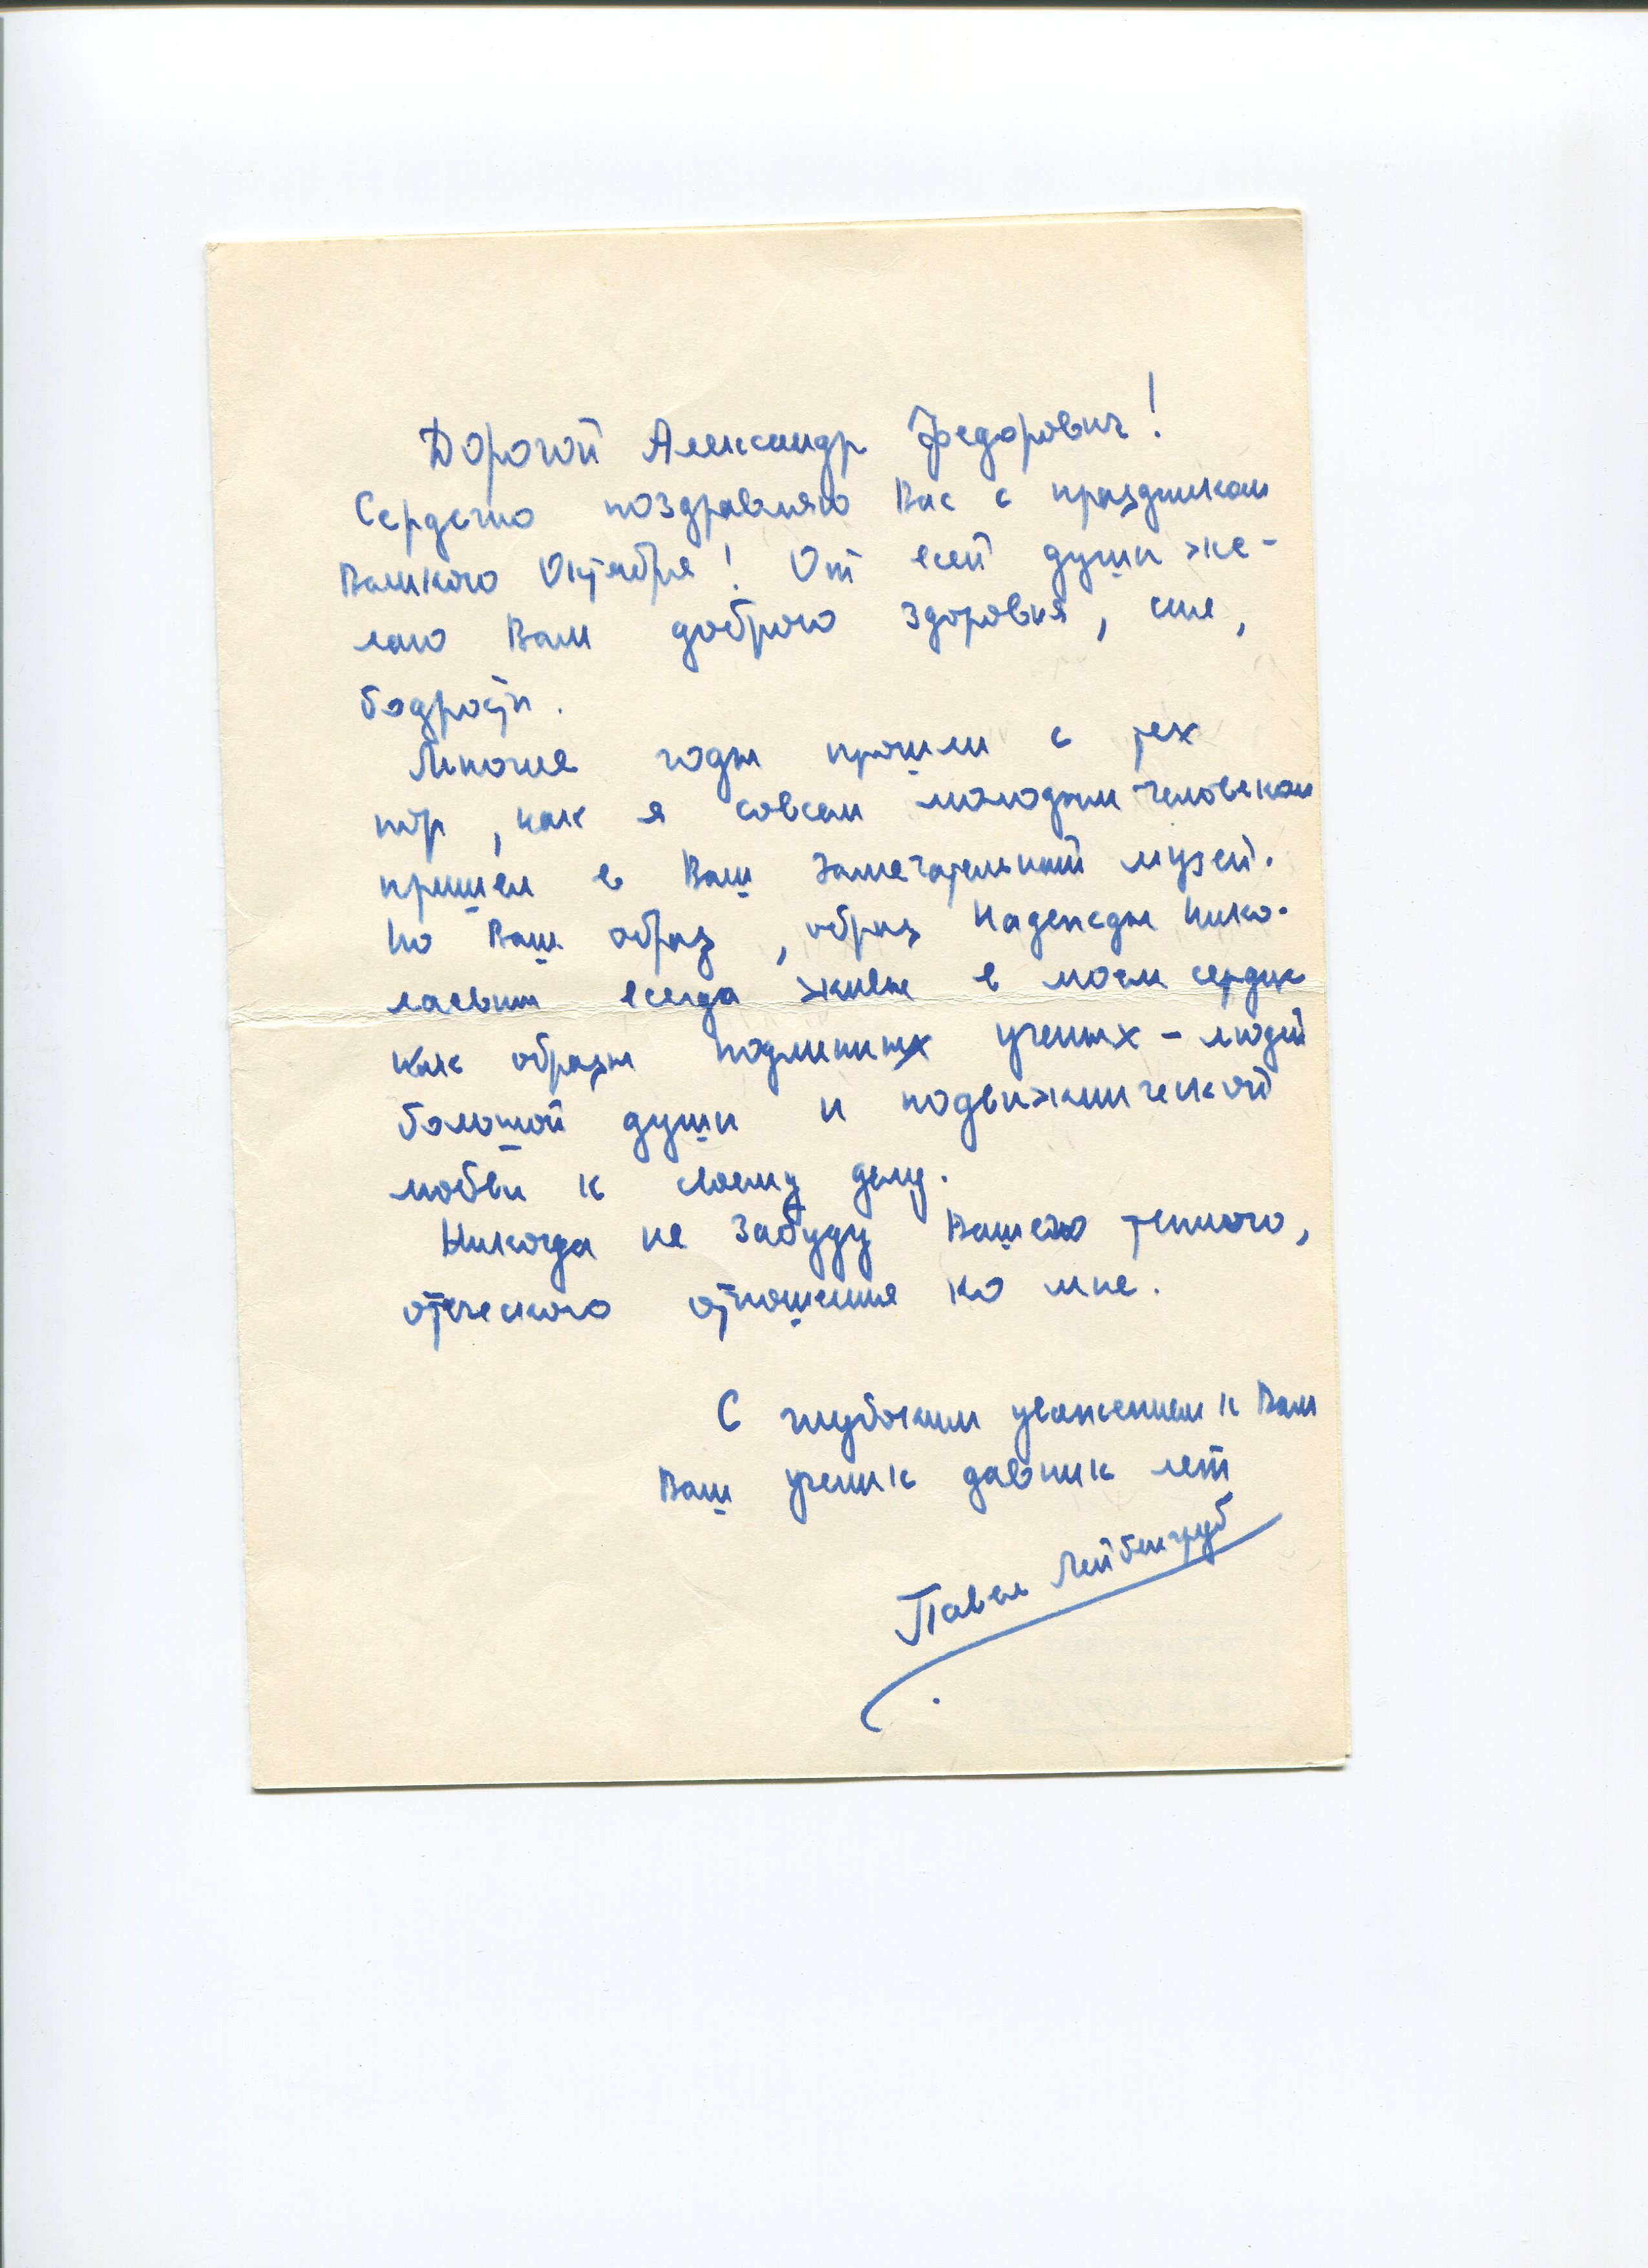 Дорогой Александр Федорович!
Сердечно поздравляю Вас с праздником
Великого Октября! От всей души же-
лаю Вам доброго здоровья, сил,
бодрости.
Многие годы прошли с тех
пор, как я совсем молодым человеком
пришел в Ваш замечательный музей.
Но Ваш образ, образ Надежды Нико-
лаевны всегда живы в моем сердце
как образы подлинных ученых - людей
большой души и подвижнической
любви к своему делу.
Никогда не забуду Вашего теплого,
отеческого отношения ко мне.
С глубоким уважением к Вам
Ваш ученик давних лет
Павел Лейбенгруб